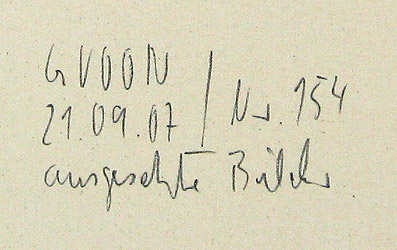 GVOON
21.09.07 / Nr. 154
ausgesetzte Bilder